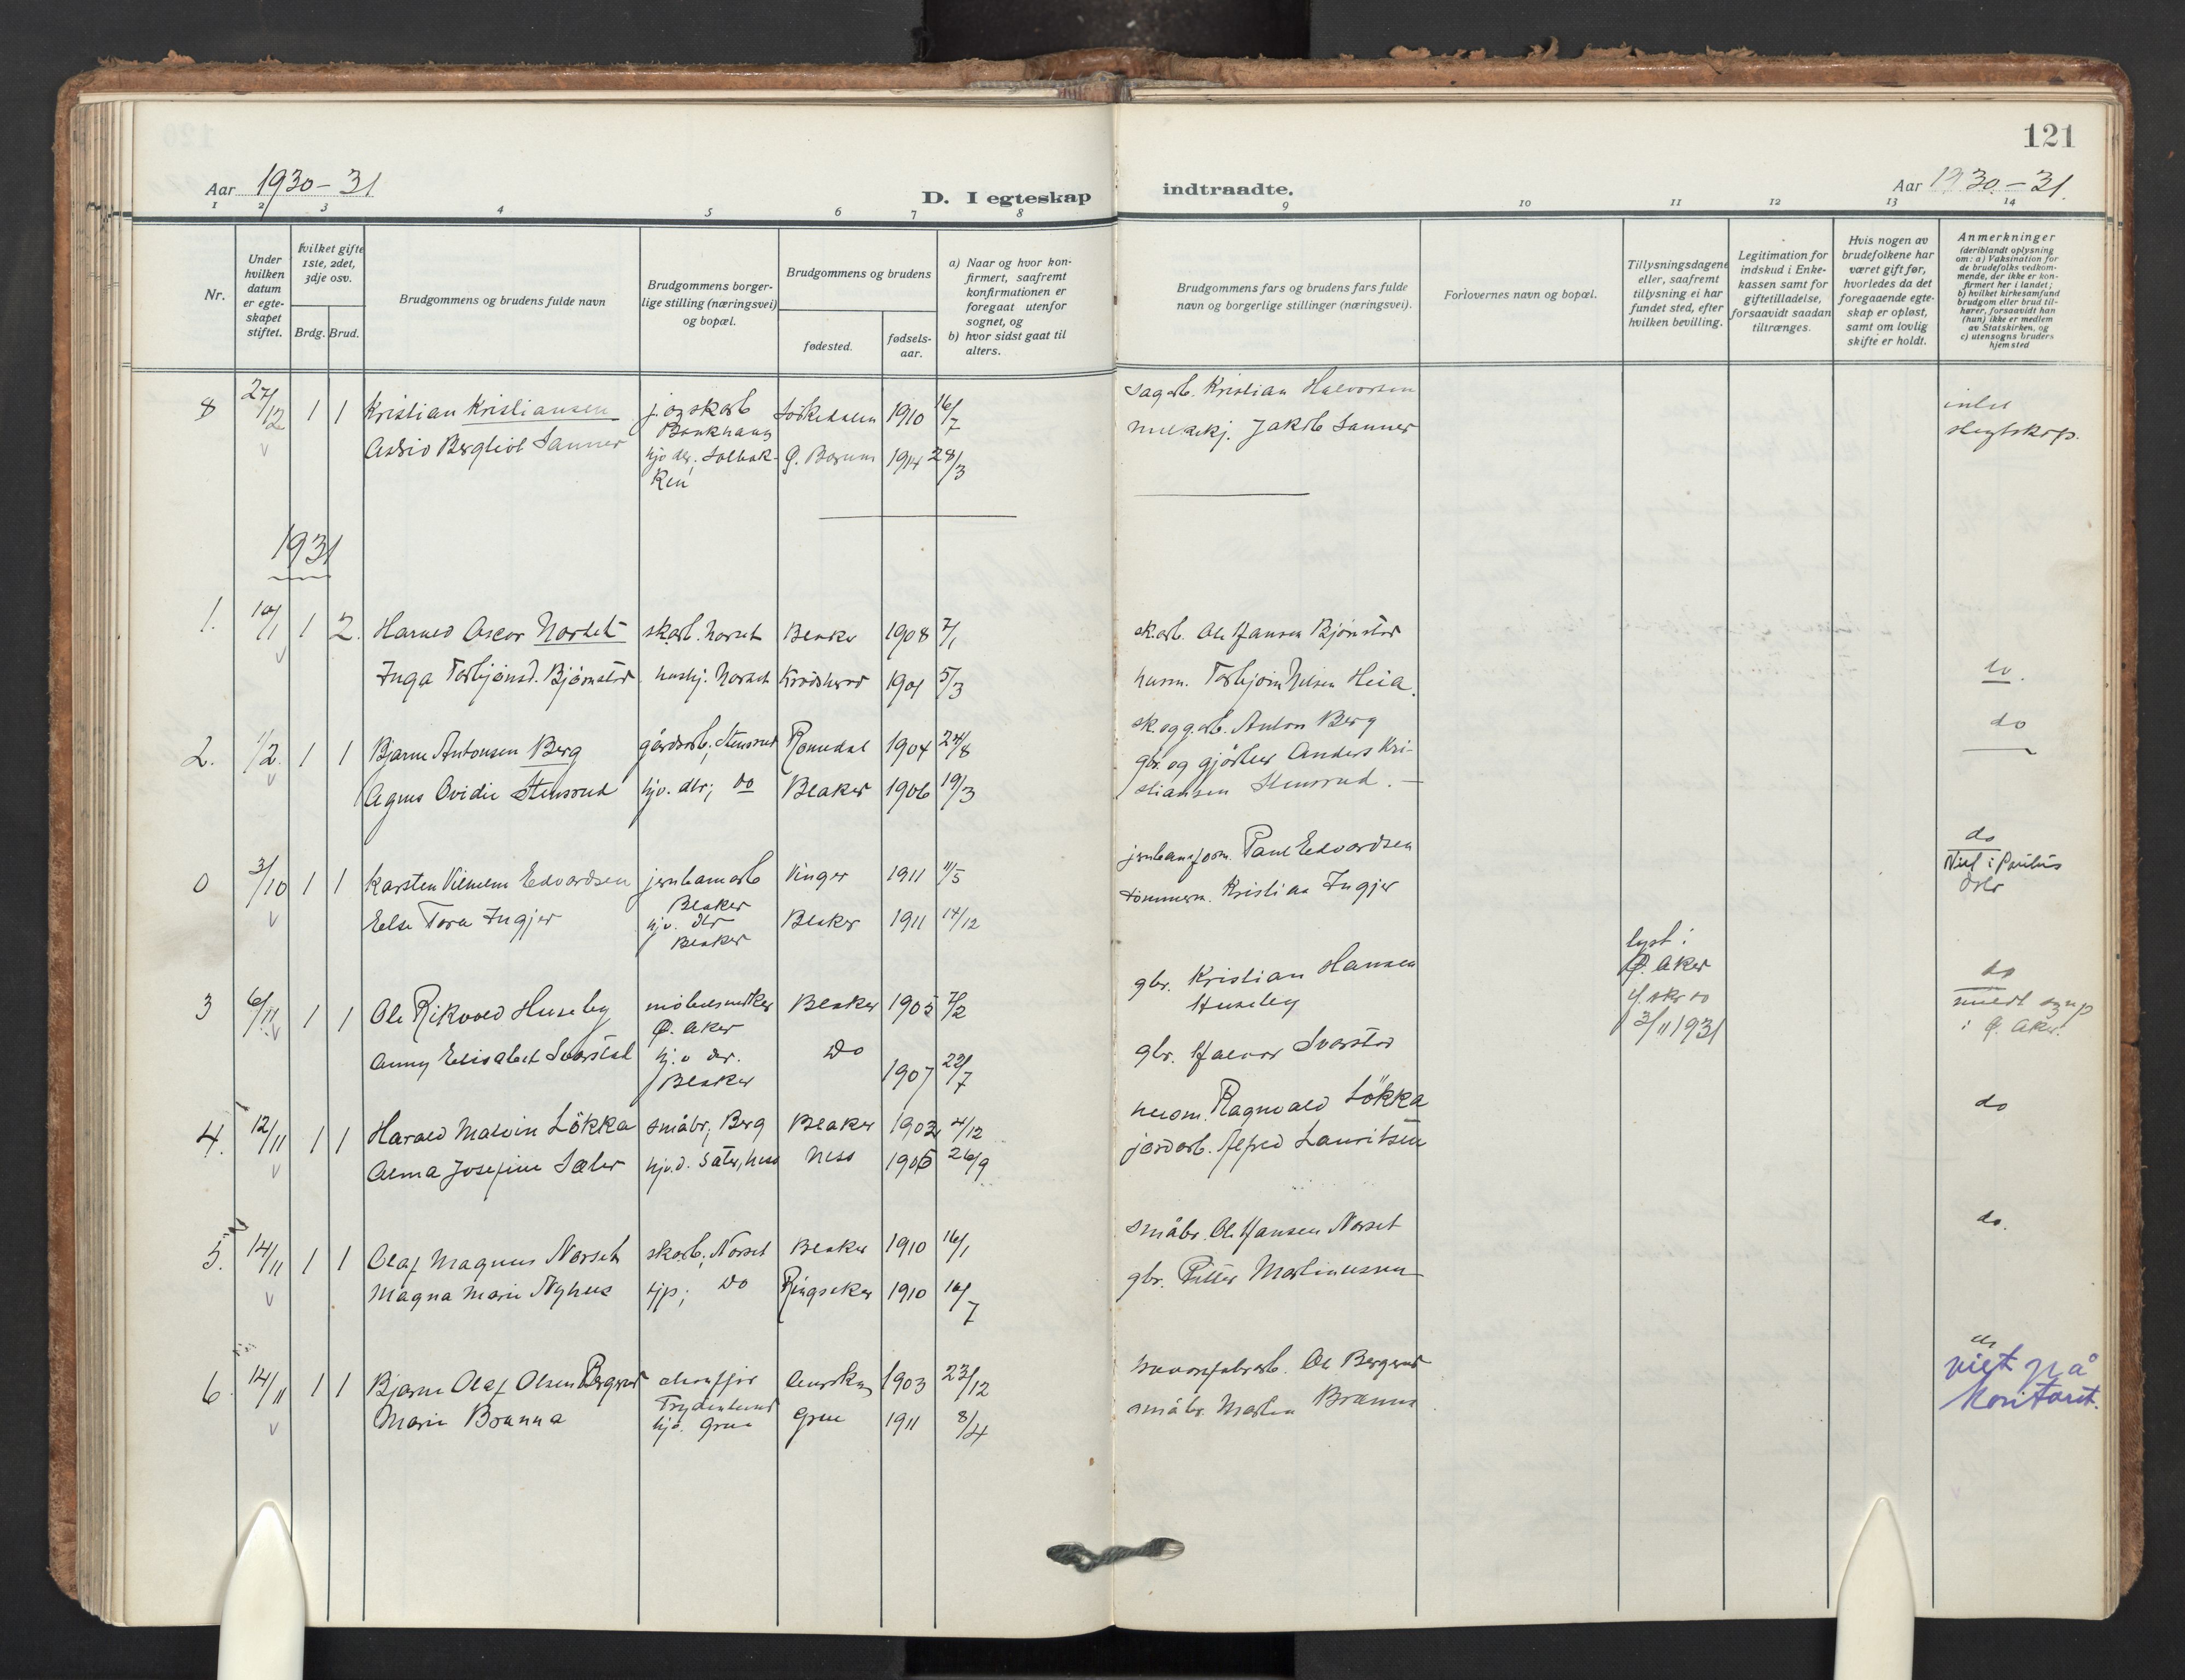 121
Aar 1930-31
D. I egteskap
indtraadte.
Aar 1930-31.
1 2 3 4 5 6 7 8 9 10 11 12 13 14
Nr.
Under hvilken datum er egteskapet stiftet.
Hvilket gifte 1ste, 2det, 3dje osv.
Brdg. Brud.
Brudgommens og brudens fulde navn
Brudgommens borgerlige stilling (næringsvei) og bopæl.
Brudgommens og brudens
fødested.
fødselsaar.
a) Naar og hvor konfirmert, saafremt konfirmationen er foregaat utenfor sognet, og
b) hvor sidst gaat til alters.
Brudgommens fars og brudens fars fulde navn og borgerlige stillinger (næringsvei).
Forlovernes navn og bopæl.
Tillysningsdagene eller, saafremt tillysning ei har fundet sted, efter hvilken bevilling.
Legitimation for indskud i Enkekassen samt for giftetilladelse, forsaavidt saadan tiltrænges.
Hvis nogen av brudefolkene har været gift før, hvorledes da det foregaaende egteskap er opløst, samt om lovlig skifte er holdt.
Anmerkninger
(deriblandt oplysning om: a) Vaksination for de brudefolks vedkommende, der ikke er konfirmert her i landet;
b) hvilket kirkesamfund brudgom eller brud tilhører, forsaavidt han (hun) ikke er medlem av Statskirken, og
c) utensogns bruders hjemsted
8 27/12 1 1 Kristian Kristiansen j. og skarb Sörkedalen 1910 16/7 sagarb. Kristian Halvorsen intet
Bergliot Sanner hjv dtr. Solbakken Ø. Bærum 1914 28/3 Jakob Sanner slegtskap.
1931
1. 10/1 1 2. Harald Oscar Norset skarb. Norset Blaker 1908 7/1 skarb. Ole Hansen Bjørnstad
Inga Torbjønsd. Bjørnstad hushj. Norset Krödsherad 1901 5/3 husm. Torbjørn Nilsen Heia. do.
2. 1/2 1 1 Bjarne Antonsen Berg gårdsarb; Stensrud Romedal 1904 24/8 sk. og g. arb. Anton Berg do
Agnes Ovidie Stensrud hjv. dtr; do Blaker 1906 19/3 gbr. og gjörtler Anders Kristiansen Stensrud. —
0 3/10 1 1 Karsten Vilhelm Edvardsen jernbanearb Blaker Vinger 1911 11/5 jernbaneform. Paul Edvardsen do
Else Tora Ingjer hjv. dtr Blaker Blaker 1911 14/12 tömmerm. Kristian Ingjer Viet i Paulus Oslo
3 6/11 1 1 Ole Rikvold Huseby möbelsnekker Ø. Aker Blaker 1905 7/2 gbr. Kristian Hansen Huseby lyst i Ø. Aker do
Anny Elisabet Svarstad hjv dtr. Blaker do 1907 22/7 gbr. Halvor Svarstad 3/11 1931 i Ø. Aker
4. 12/11 1 1 Harald Malvin Lökka småbr; Berg Blaker 1902 4/12 husm. Ragnvald Lökka do
Alma Josefine Sæter hjv.d. Sæter, Ness Ness 1905 26/9 jordarb. Alfred Lauritsen
5. 14/11 1 1 Olaf Magnus Norset skarb; Norset Blaker 1910 16/1 småbr. Ole Hansen Norset do.
Magna Marie Nyhus hjp; do Ringsaker 1910 10/7 gbr. Petter Martinussen
6. 14/11 1 1 Bjarne Olaf Olsen Bergerud Aurskog 1903 23/12 Ole Bergerud do
Marie Brænna hjd. Grue Grue 1911 8/4 småbr. Martin Brænna viet på kontoret.